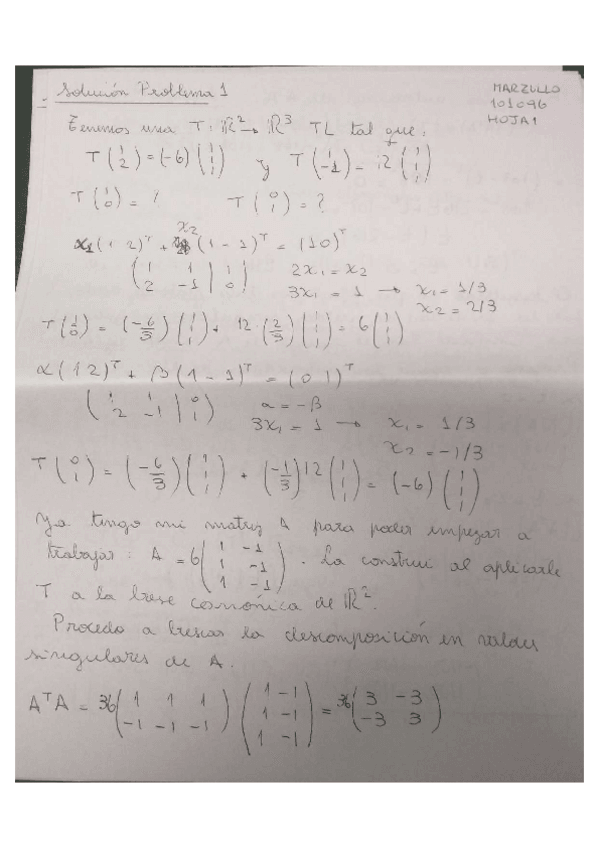 Solución Problema 1
MARZULLO
101096
HOJA 1
Tenemos una T: ℝ² → ℝ³ TL tal que:
T (1 2) = (-6) (1 1 1) y T (1 -1) = 12 (1 1 1)
T (1 0) = ? T (0 1) = ?
x₁ (1 2)ᵀ + x₂ (1 -1)ᵀ = (1 0)ᵀ
(1 1 | 1
2 -1 | 0) 2x₁ = x₂
3x₁ = 1 → x₁ = 1/3
x₂ = 2/3
T (1 0) = (-6/3) (1 1 1) + 12·(2/3) (1 1 1) = 6 (1 1 1)
α (1 2)ᵀ + β (1 -1)ᵀ = (0 1)ᵀ
(1 1 | 0
2 -1 | 1) α = -β
3x₁ = 1 → x₁ = 1/3
x₂ = -1/3
T (0 1) = (-6/3) (1 1 1) + (-1/3) 12 (1 1 1) = (-6) (1 1 1)
Ya tengo mi matriz A para poder empezar a
trabajar: A = 6 (1 -1
1 -1
1 -1). La construi al aplicarle
T a la base canónica de ℝ².
Procedo a buscar la descomposición en valores
singulares de A.
AᵀA = 36 (1 1 1
-1 -1 -1) (1 -1
1 -1
1 -1) = 36 (3 -3
-3 3)